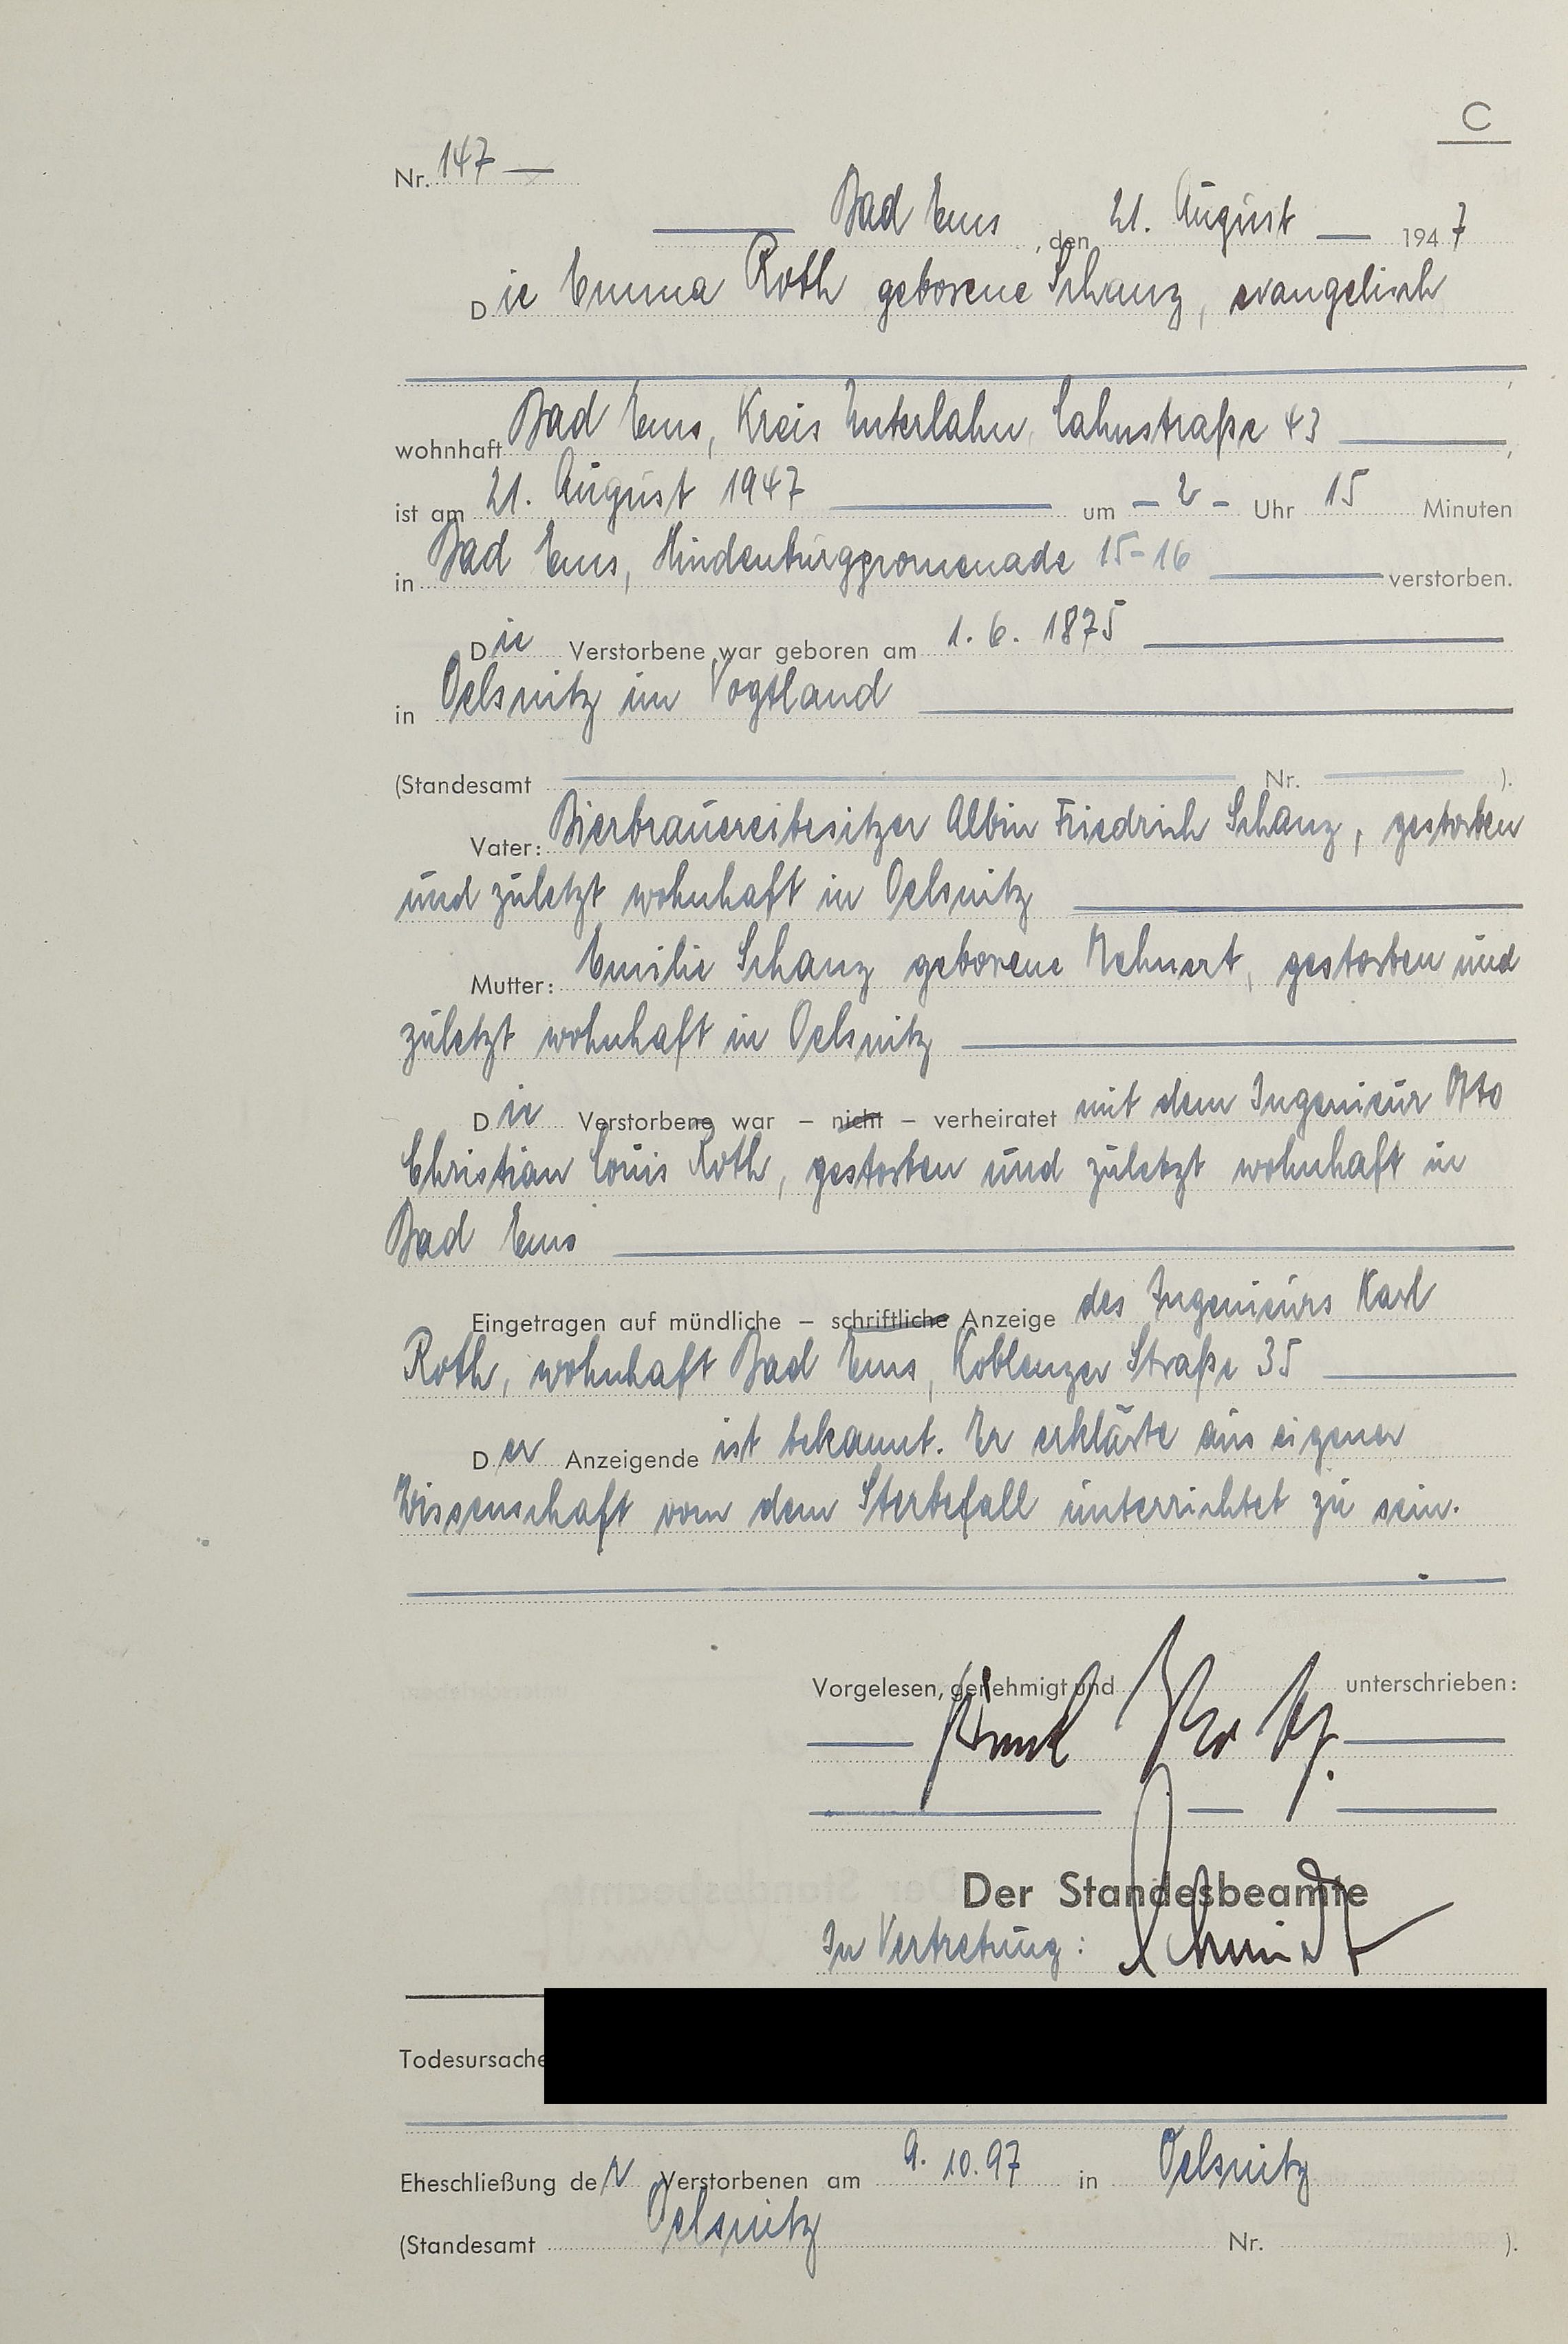 C
Nr. 147 —
Bad Ems, den 21. August — 1947
Die Emma Roth geborene Schanz, evangelisch
wohnhaft Bad Ems, Kreis Unterlahn, Lahnstraße 43,
ist am 21. August 1947 um - 2 - Uhr 15 Minuten
in Bad Ems, Hindenburgpromenade 15-16 verstorben.
Die Verstorbene war geboren am 1. 6. 1875
in Oelsnitz im Vogtland
(Standesamt Nr. ).
Vater: Bierbrauereibesitzer Albin Friedrich Schanz, gestorben
und zuletzt wohnhaft in Oelsnitz
Mutter: Emilie Schanz geborene Mehnert, gestorben und
zuletzt wohnhaft in Oelsnitz
Die Verstorbene war – nicht – verheiratet mit dem Ingenieur Otto
Christian Louis Roth, gestorben und zuletzt wohnhaft in
Bad Ems
Eingetragen auf mündliche – schriftliche Anzeige des Ingenieurs Karl
Roth, wohnhaft Bad Ems, Koblenzer Straße 35
Der Anzeigende ist bekannt. Er erklärte aus eigener
Wissenschaft von dem Sterbefall unterrichtet zu sein.
Vorgelesen, genehmigt und unterschrieben:
Roth.
Der Standesbeamte
In Vertretung: Schmidt
Todesursache
Eheschließung der Verstorbenen am 9. 10. 97 in Oelsnitz
(Standesamt Oelsnitz Nr. ).